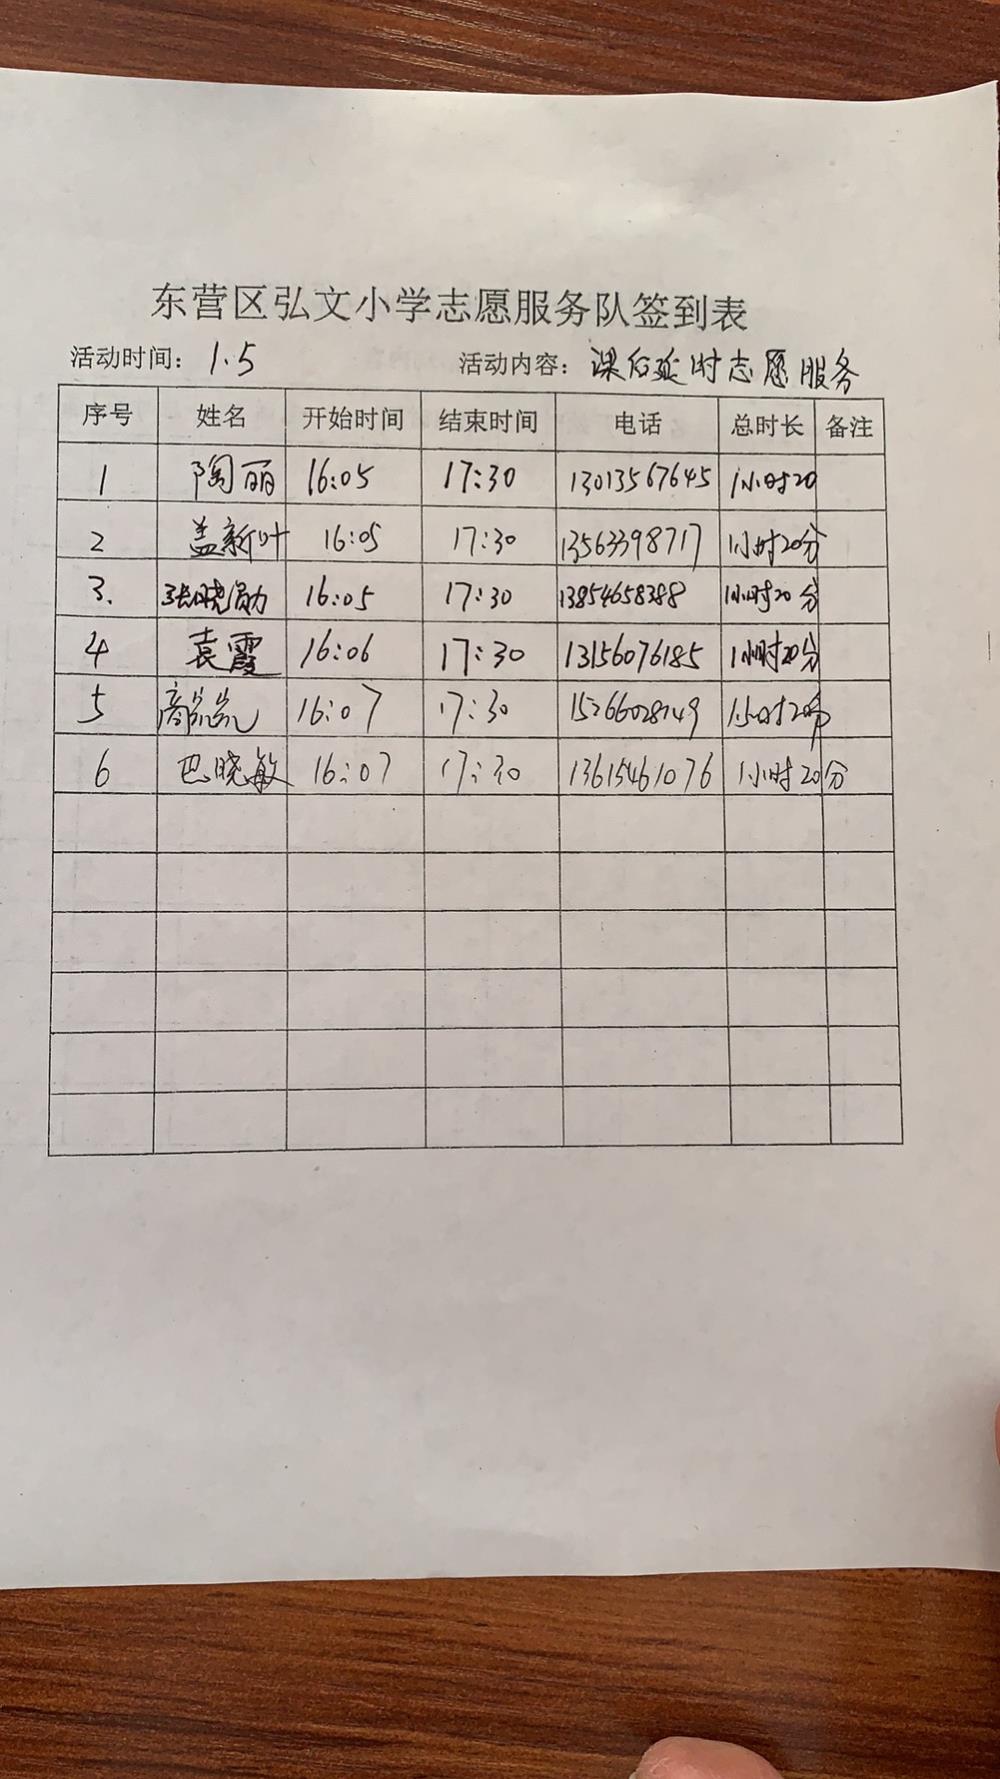 东营区弘文小学志愿服务队签到表
活动时间：1.5 活动内容：课后延时志愿服务
序号 姓名 开始时间 结束时间 电话 总时长 备注
1 陶丽 16:05 17:30 13013567645 1小时20
2 盖新叶 16:05 17:30 13563398717 1小时20分
3. 张晓勋 16:05 17:30 13854658388 1小时20分
4 袁霞 16:06 17:30 13156076185 1小时20分
5 16:07 17:30 15266028149 1小时20分
6 巴晓敏 16:07 17:30 13615461076 1小时20分